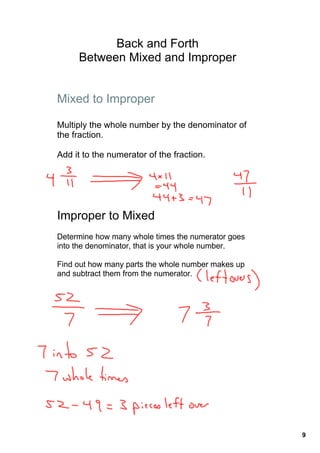 Back and Forth
Between Mixed and Improper
Mixed to Improper
Multiply the whole number by the denominator of
the fraction.
Add it to the numerator of the fraction.
4 3/11 ⟹ 4×11 47/11
=44
44+3=47
Improper to Mixed
Determine how many whole times the numerator goes
into the denominator, that is your whole number.
Find out how many parts the whole number makes up
and subtract them from the numerator. (leftovers)
52/7 ⟹ 7 3/7
7 into 52
7 whole times
52-49=3 pieces left over
9